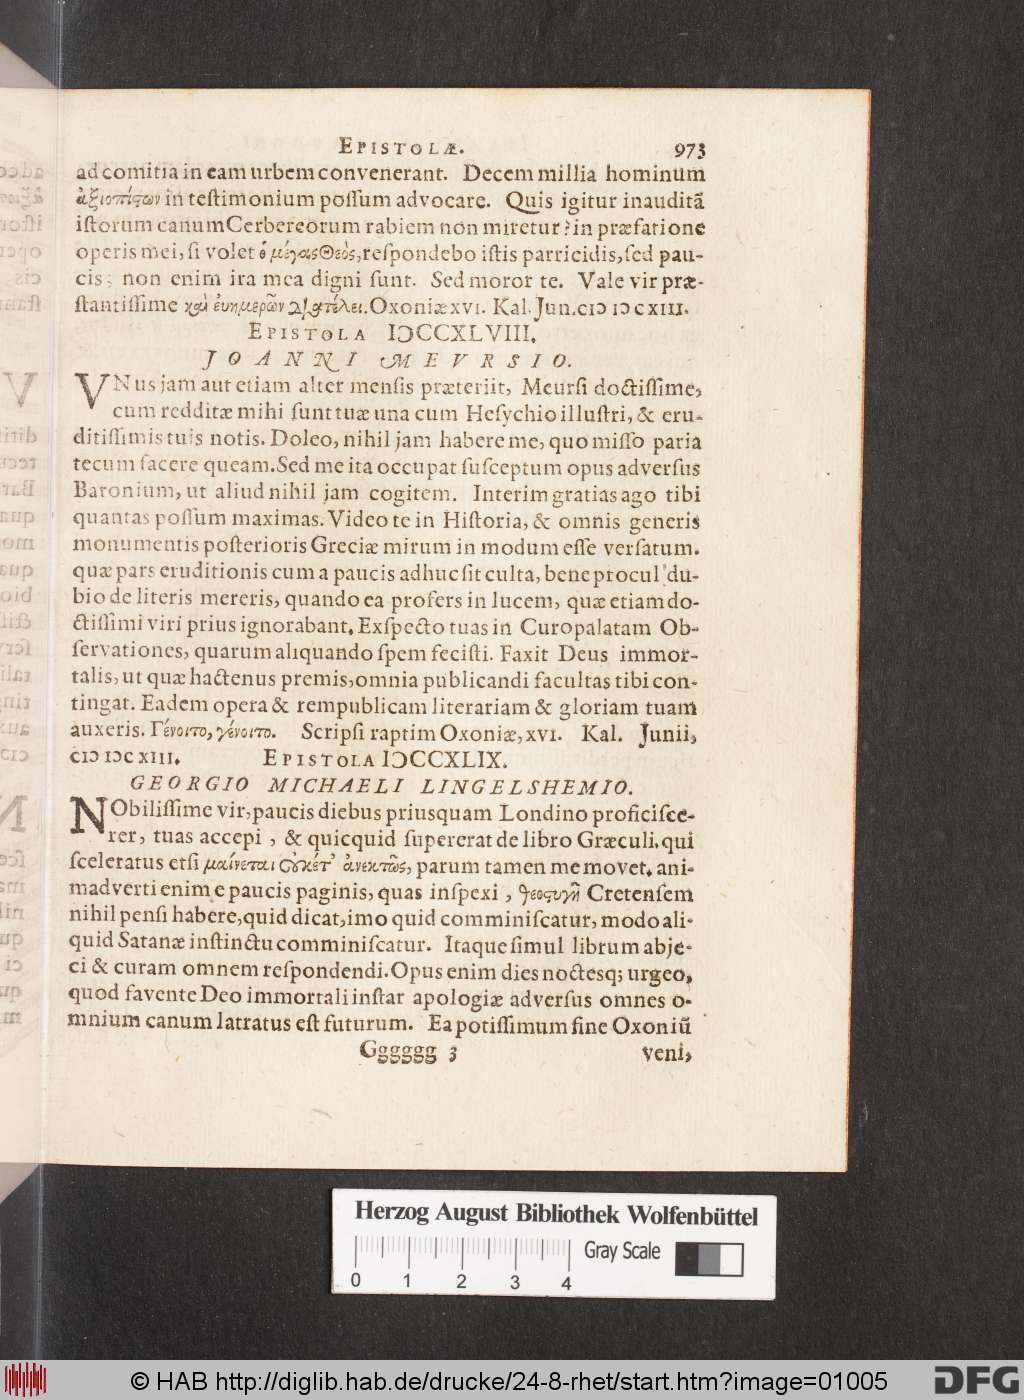 EPISTOLÆ. 973
ad comitia in eam urbem convenerant. Decem millia hominum
ἀξιοπίςων in teſtimonium poſſum advocare. Quis igitur inauditã
iſtorum canum Cerbereorum rabiem non miretur? in præfatione
operis mei, ſi volet ὁ μέγας Θεὸς, reſpondebo iſtis parricidis, ſed pau-
cis; non enim ira mea digni ſunt. Sed moror te. Vale vir præ-
ſtantiſſime καὶ ἐυημερῶν διατέλει. Oxoniæ xvI. Kal. Jun. cIↄ Iↄc xIII.
EPISTOLA IↃCCXLVIII.
JOANNI MEVRSIO.
VNus jam aut etiam alter menſis præteriit, Meurſi doctiſſime,
cum redditæ mihi ſunt tuæ una cum Heſychio illuſtri, & eru-
ditiſſimis tuis notis. Doleo, nihil jam habere me, quo miſſo paria
tecum facere queam. Sed me ita occupat ſuſceptum opus adverſus
Baronium, ut aliud nihil jam cogitem. Interim gratias ago tibi
quantas poſſum maximas. Video te in Hiſtoria, & omnis generis
monumentis poſterioris Greciæ mirum in modum eſſe verſatum.
quæ pars eruditionis cum a paucis adhuc ſit culta, bene procul du-
bio de literis mereris, quando ea profers in lucem, quæ etiam do-
ctiſſimi viri prius ignorabant. Exſpecto tuas in Curopalatam Ob-
ſervationes, quarum aliquando ſpem feciſti. Faxit Deus immor-
talis, ut quæ hactenus premis, omnia publicandi facultas tibi con-
tingat. Eadem opera & rempublicam literariam & gloriam tuam
auxeris. Γένοιτο, γένοιτο. Scripſi raptim Oxoniæ, xvI. Kal. Junii,
cIↄ Iↄc xIII. EPISTOLA IↃCCXLIX.
GEORGIO MICHAELI LINGELSHEMIO.
NObiliſſime vir, paucis diebus priusquam Londino proficiſce-
rer, tuas accepi, & quicquid ſupererat de libro Græculi, qui
ſceleratus etſi μαίνεται οὐκέτ' ἀνεκτῶς, parum tamen me movet. ani-
madverti enim e paucis paginis, quas inſpexi, θεοςυγῆ Cretenſem
nihil penſi habere, quid dicat, imo quid comminiſcatur, modo ali-
quid Satanæ inſtinctu comminiſcatur. Itaque ſimul librum abje-
ci & curam omnem reſpondendi. Opus enim dies noctesq; urgeo,
quod favente Deo immortali inſtar apologiæ adverſus omnes o-
mnium canum latratus eſt futurum. Ea potiſſimum fine Oxoniũ
Gggggg 3 veni,
Herzog August Bibliothek Wolfenbüttel
Gray Scale
0 1 2 3 4
© HAB http://diglib.hab.de/drucke/24-8-rhet/start.htm?image=01005
DFG